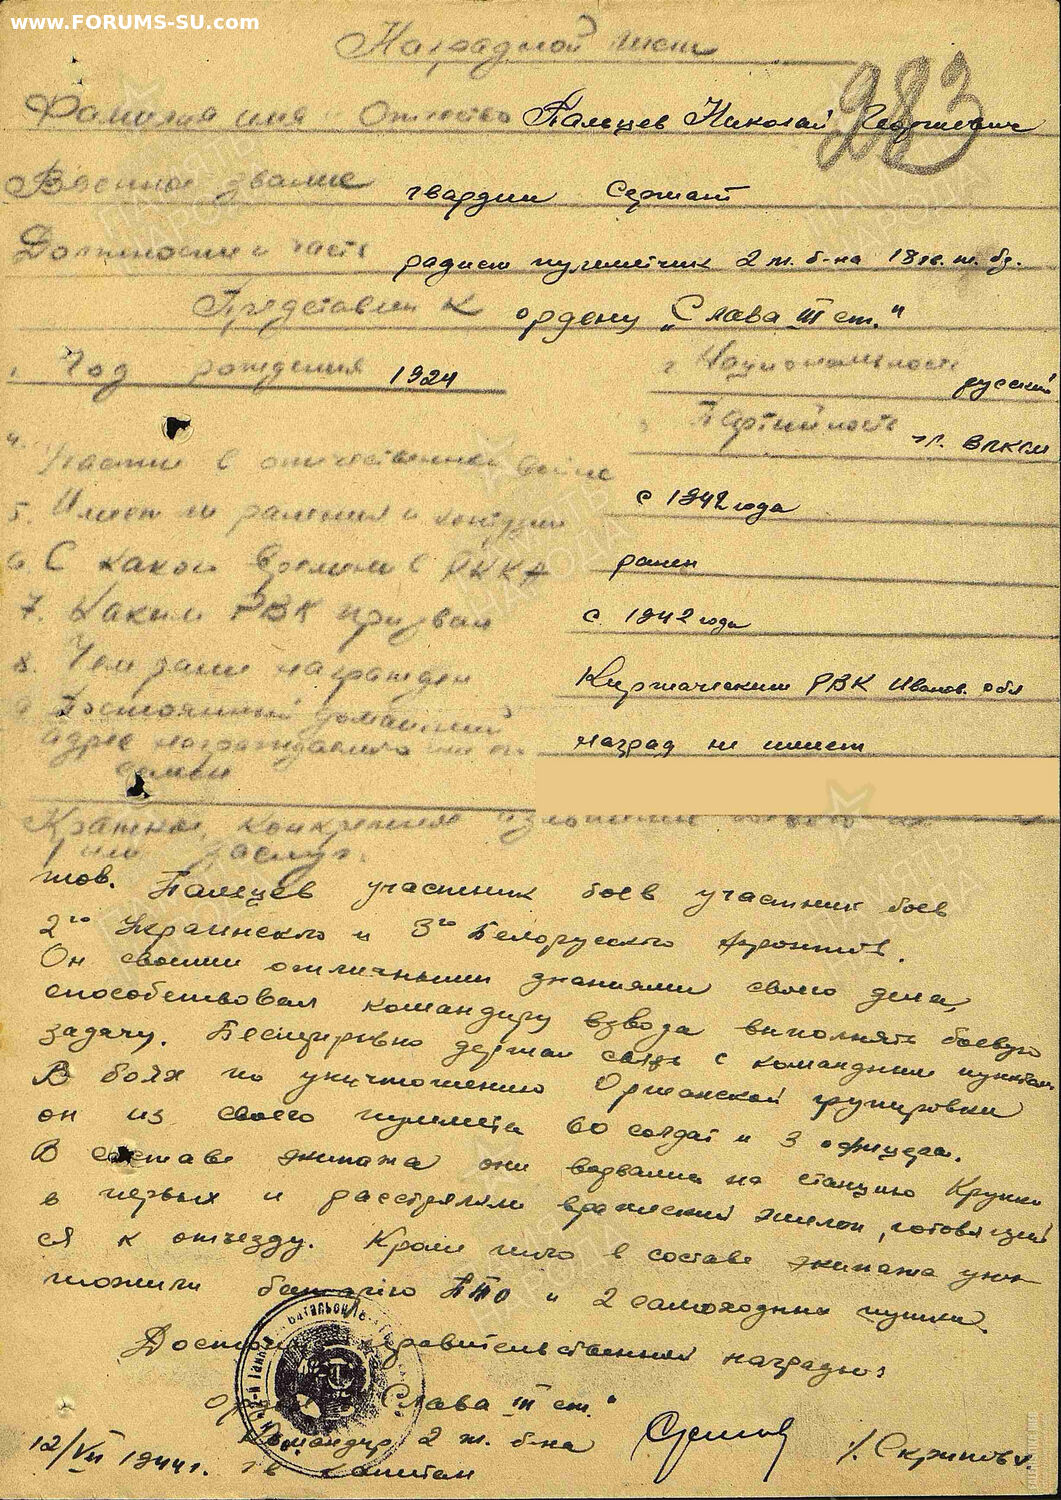 www.FORUMS-SU.com
Наградной лист
283
Фамилия имя и Отчество Пальцев Николай Георгиевич
Военное звание гвардии Сержант
Должность и часть радист пулеметчик 2 т. б-на 18 гв. т. бр.
Представлен к ордену „Слава III ст."
1. Год рождения 1924
2. Национальность русский
3. Партийность чл. ВЛКСМ
4. Участие в отечественной войне с 1942 года
5. Имеет ли ранения и контузии ранен
6. С какого времени в РККА с 1942 года
7. Каким РВК призван Киржаческим РВК Иванов. обл
8. Чем ранее награжден наград не имеет
9. Постоянный домашний
адрес награждаемого или его
семьи
Краткое, конкретное изложение
или заслуг.
тов. Пальцев участник боев участник боев
2го Украинского и 3го Белорусского фронтов.
Он своими отличными знаниями своего дела,
способствовал командиру взвода выполнять боевую
задачу. Бесперерывно держал связь с командным пунктом
В боях по уничтожению Оршанской групировки
он из своего пулемета 60 солдат и 3 офицера.
В составе экипажа они ворвались на станцию Крупки
в первых и расстреляли вражеский эшелон, готовящий
ся к отъезду. Кроме того в составе экипажа унич
тожили батарею ПТО и 2 самоходных пушки.
Достоин правительственной награды:
ордена „Слава III ст."
Командир 2 т. б-на
12/VII 1944 г. гв капитан /. Скрипов.